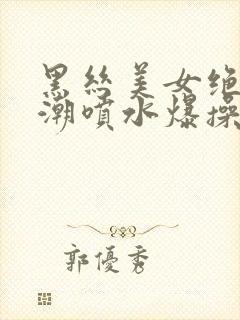 黑丝美女绝
潮喷水爆操
郭優秀